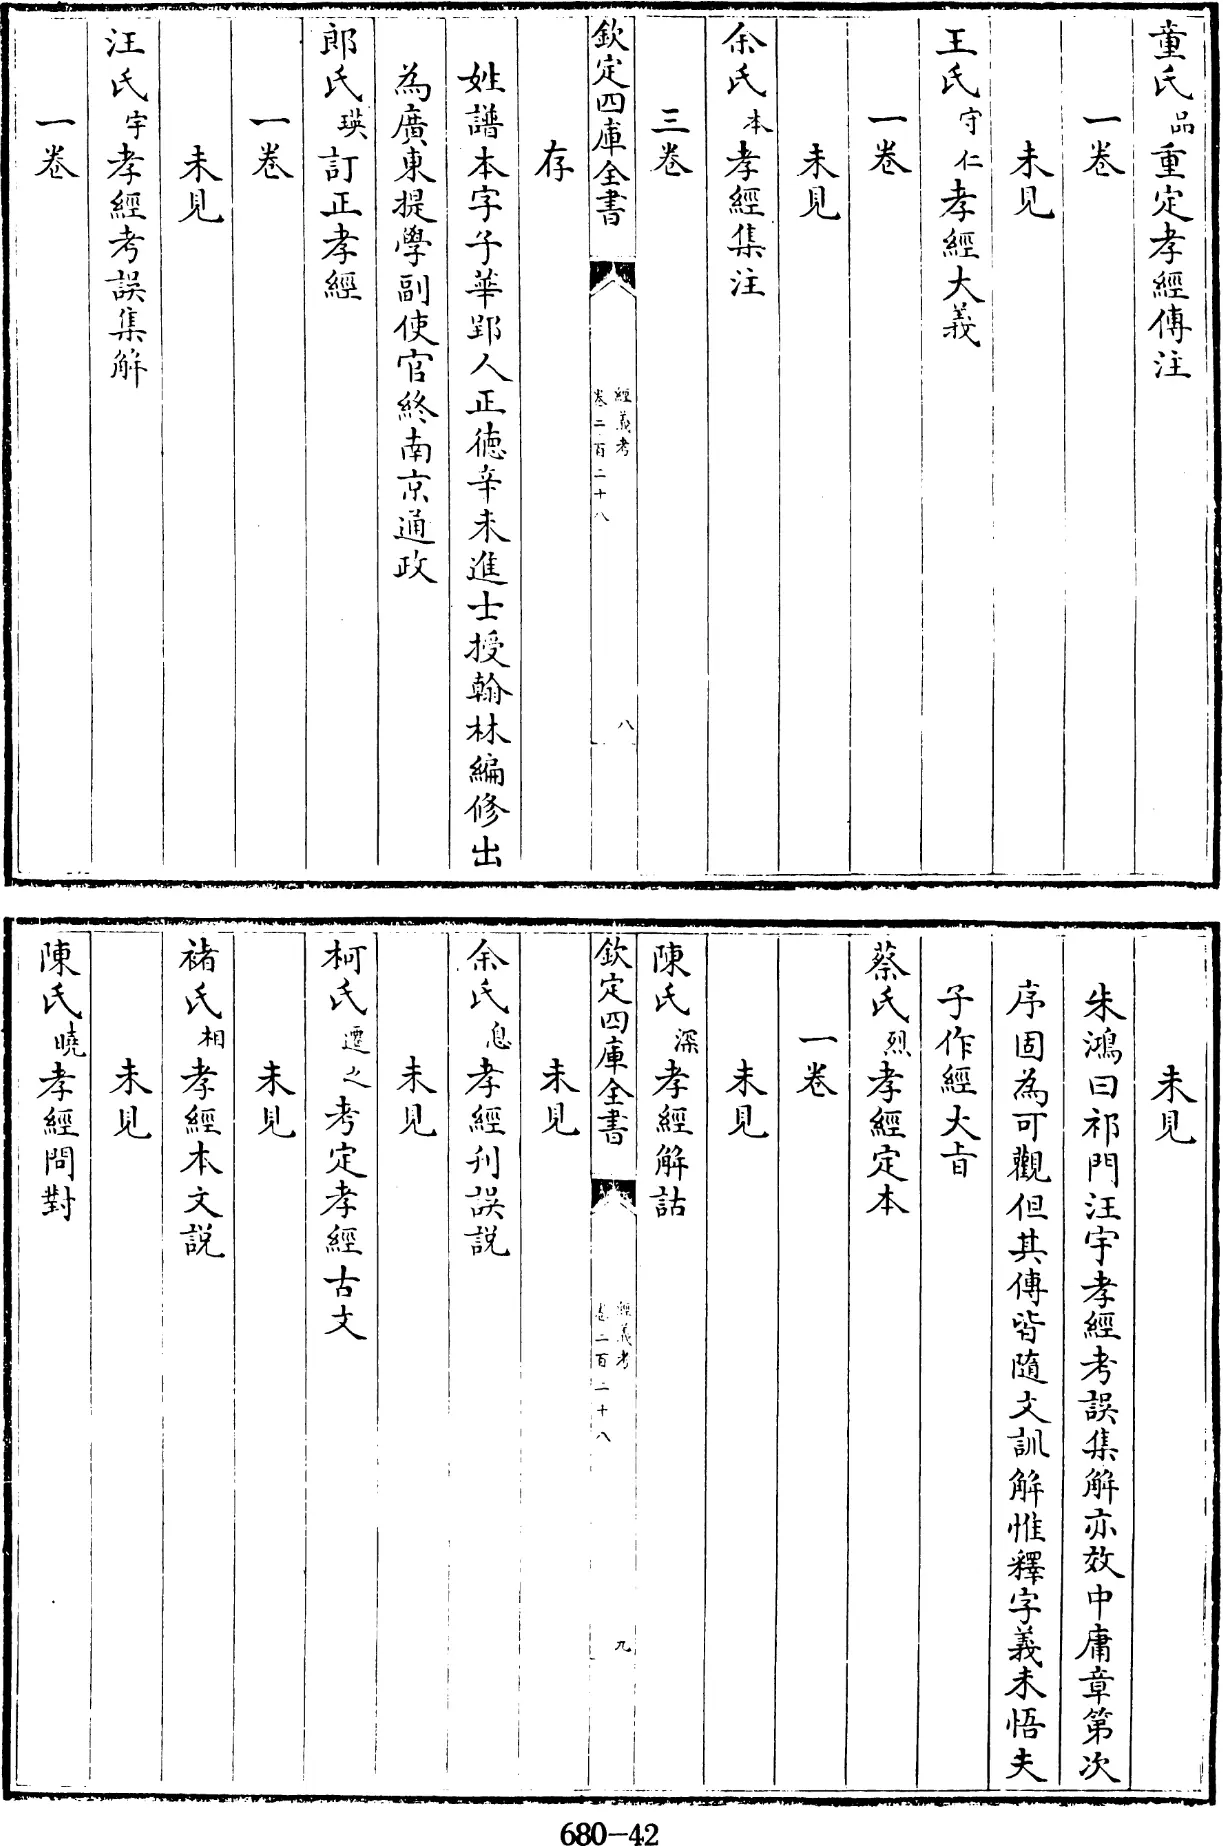 童氏品重定孝經傳注
一卷
未見
王氏守仁孝經大義
一卷
未見
余氏本孝經集注
三卷
欽定四庫全書
經義考
卷二百二十八
八
存
姓譜本字子華鄞人正德辛未進士授翰林編修出
為廣東提學副使官終南京通政
郎氏瑛訂正孝經
一卷
未見
汪氏宇孝經考誤集解
一卷
未見
朱鴻曰祁門汪宇孝經考誤集解亦效中庸章第次
序固為可觀但其傳皆隨文訓解惟釋字義未悟夫
子作經大旨
蔡氏烈孝經定本
一卷
未見
陳氏深孝經解詁
欽定四庫全書
經義考
卷二百二十八
九
未見
余氏息孝經刊誤説
未見
柯氏遷之考定孝經古文
未見
褚氏相孝經本文説
未見
陳氏曉孝經問對
680-42